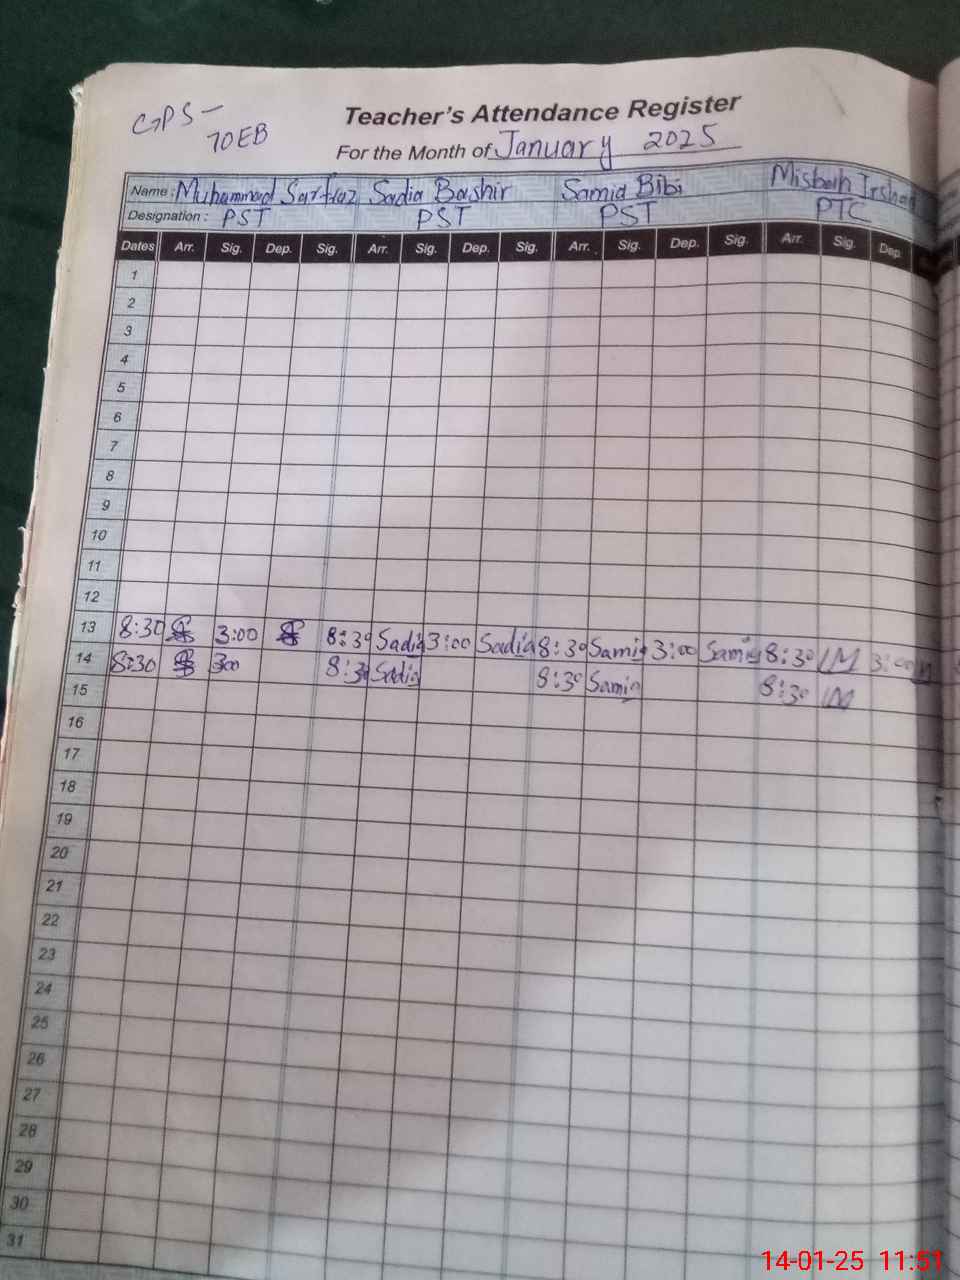 GPS-
70EB
Teacher's Attendance Register
For the Month of January 2025
Name : Muhammad Sarfraz Sadia Bashir Samia Bibi Misbah Irshad
Designation : PST PST PST PTC
Dates Arr. Sig. Dep. Sig. Arr. Sig. Dep. Sig. Arr. Sig. Dep. Sig. Arr. Sig. Dep.
1
2
3
4
5
6
7
8
9
10
11
12
13 8:30 3:00 8:30 Sadia 3:00 Sadia 8:30 Samia 3:00 Samia 8:30 IM 3:00
14 8:30 300 8:30 Sadia 8:30 Samia 8:30 IM
15
16
17
18
19
20
21
22
23
24
25
26
27
28
29
30
31
14-01-25 11:51